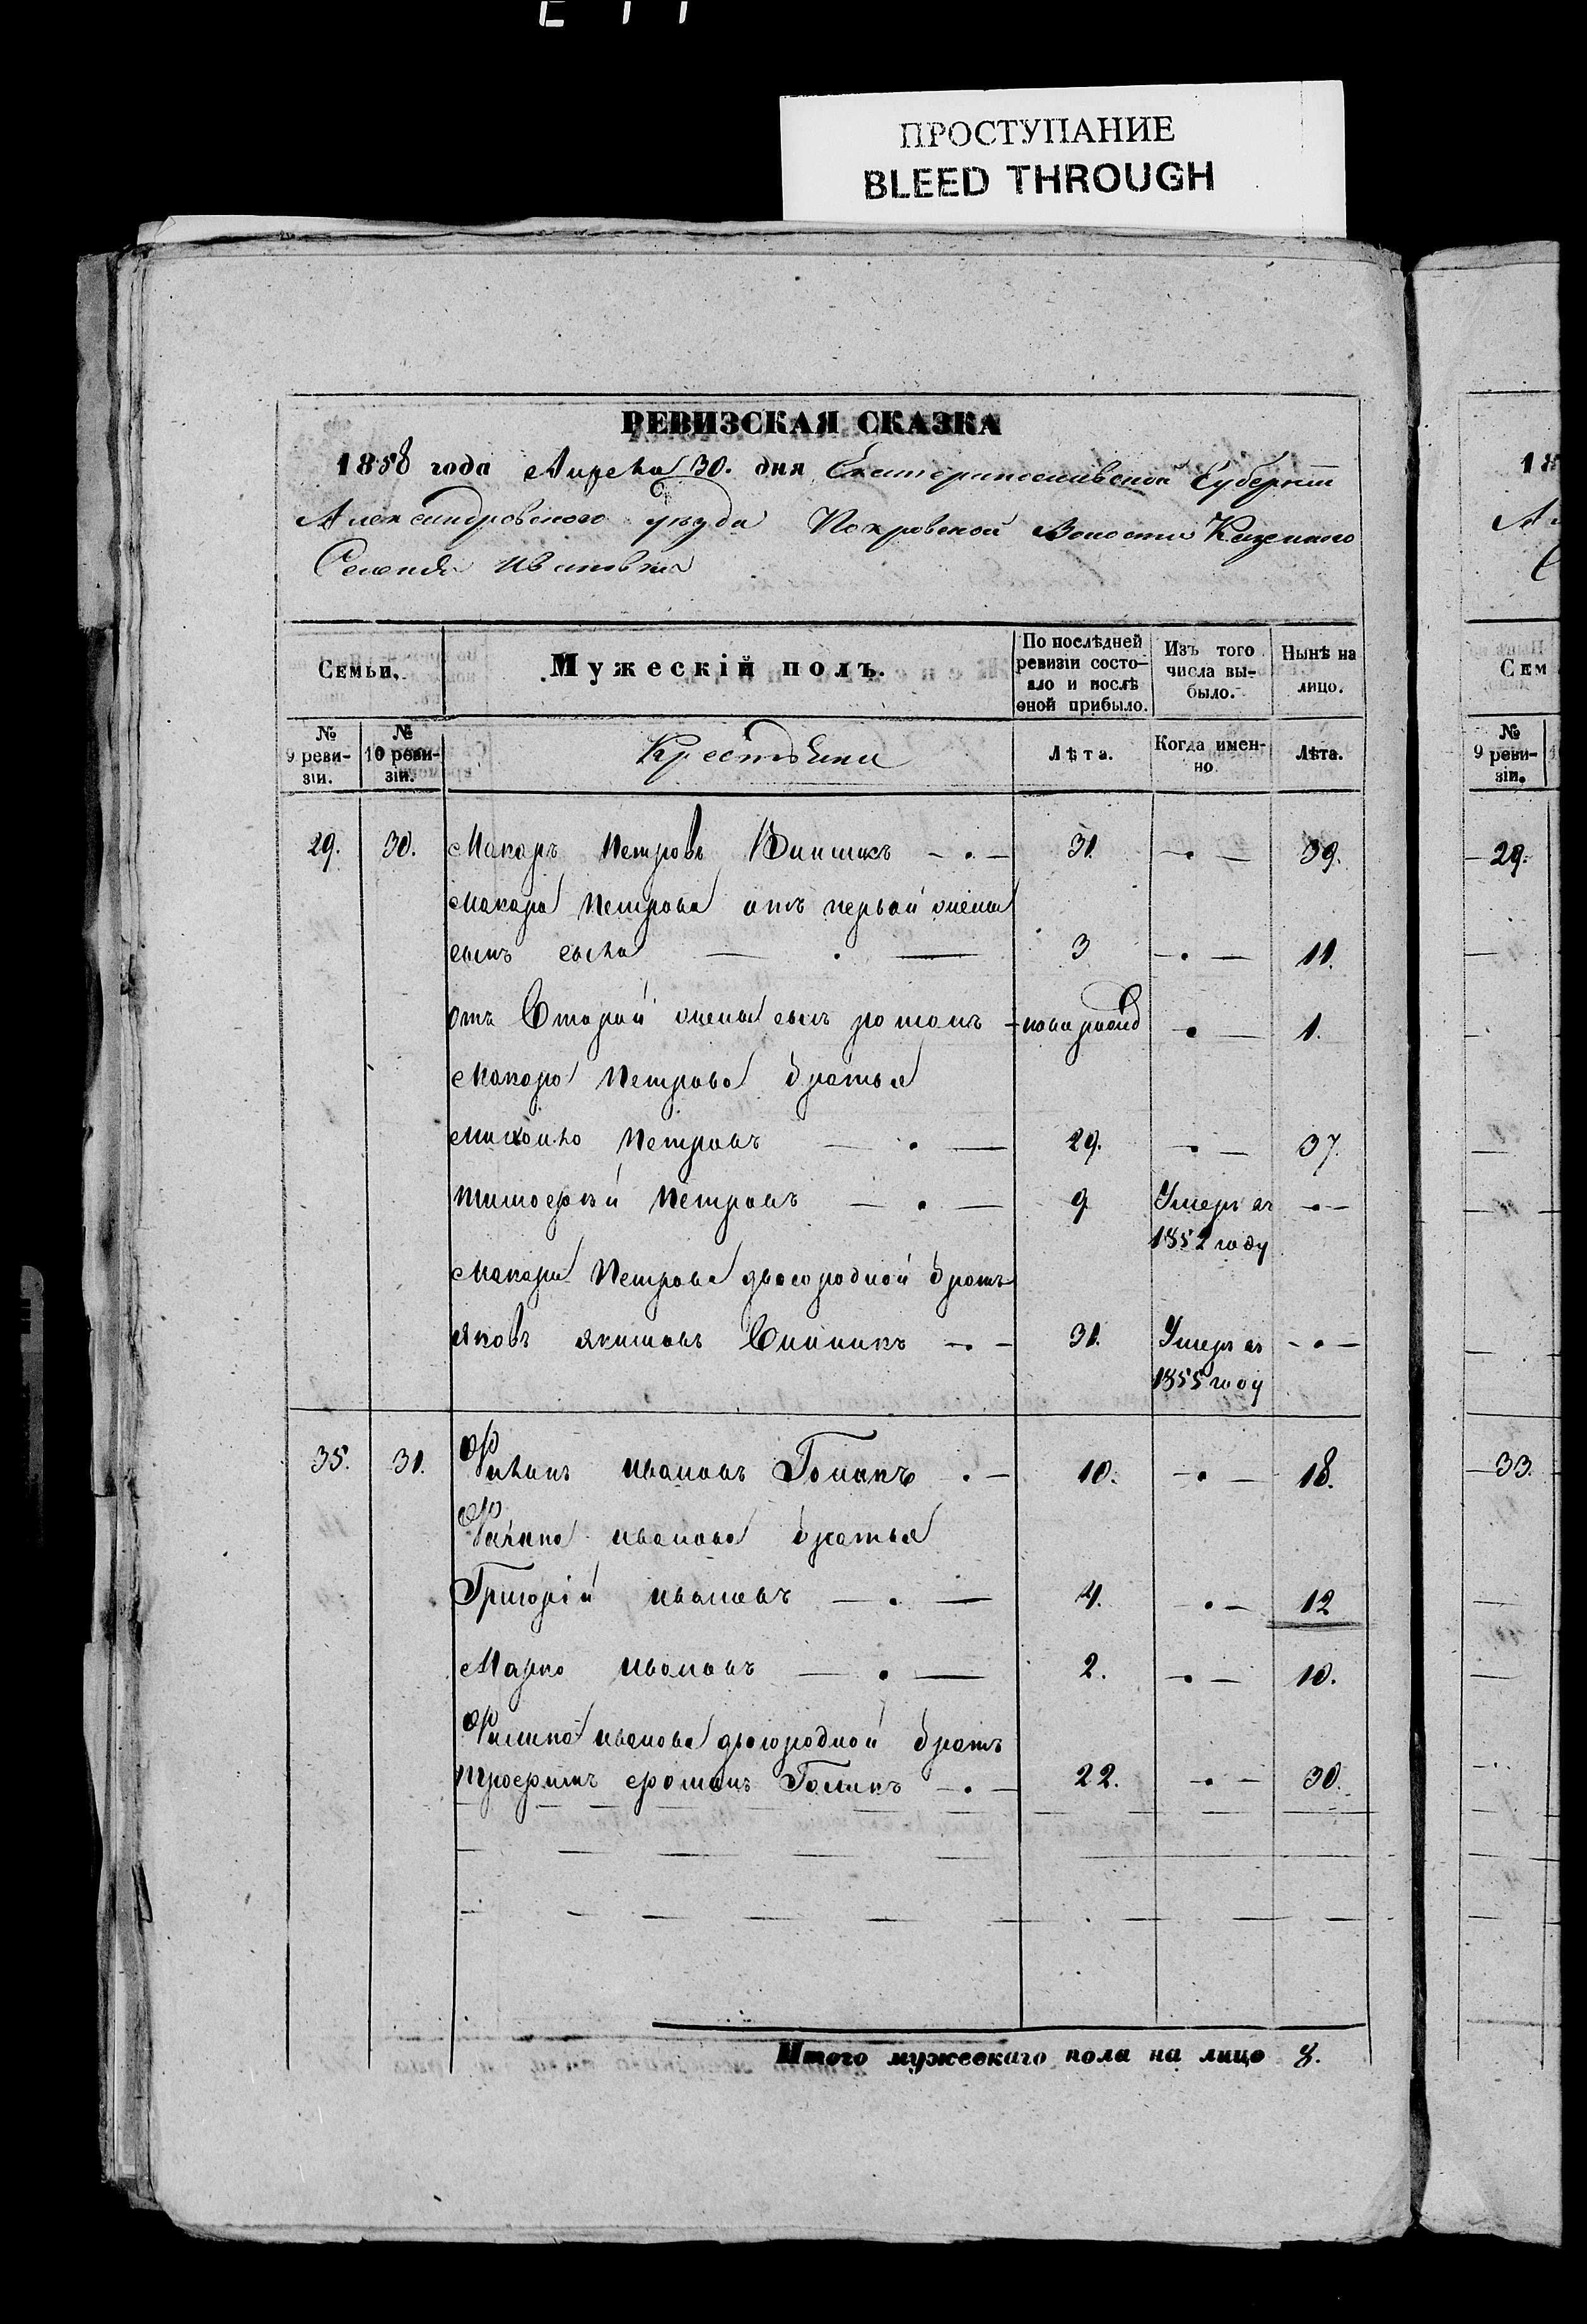 ПРОСТУПАНИЕ
BLEED THROUGH
РЕВИЗСКАЯ СКАЗКА
1858 года Апреля 30. дня Екатеринославской Губернии
Александровского уезда Покровской Волости Казенного
Селения Ивановки
Семьи. Мужескій полъ. По послѣдней ревизіи состояло и послѣ оной прибыло. Изъ того числа выбыло. Нынѣ на лицо.
№ 9 ревизіи. № 10 ревизіи. Крестьяни Лѣта. Когда именно. Лѣта.
29. 30. Макаръ Петровъ 31. 39.
Макара Петрова отъ первой жены
сынъ 3 11.
отъ Второй жены сынъ романъ новорожд 1.
Макара Петрова братья
Михайло Петровъ 29. 37.
Тимофей Петровъ 9 Умеръ въ
1852 году
Макара Петрова двоюродной братъ
яковъ якимовъ 31. Умеръ въ
1855 году
35. 31. Филипъ ивановъ 10. 18.
Филипа иванова братья
Григорій ивановъ 4. 12
Марко ивановъ 2. 10.
Филипа иванова двоюродной братъ
трофимъ 22. 30.
Итого мужескаго пола на лицо 8.
29.
33.
1
№ 9 ревизіи.